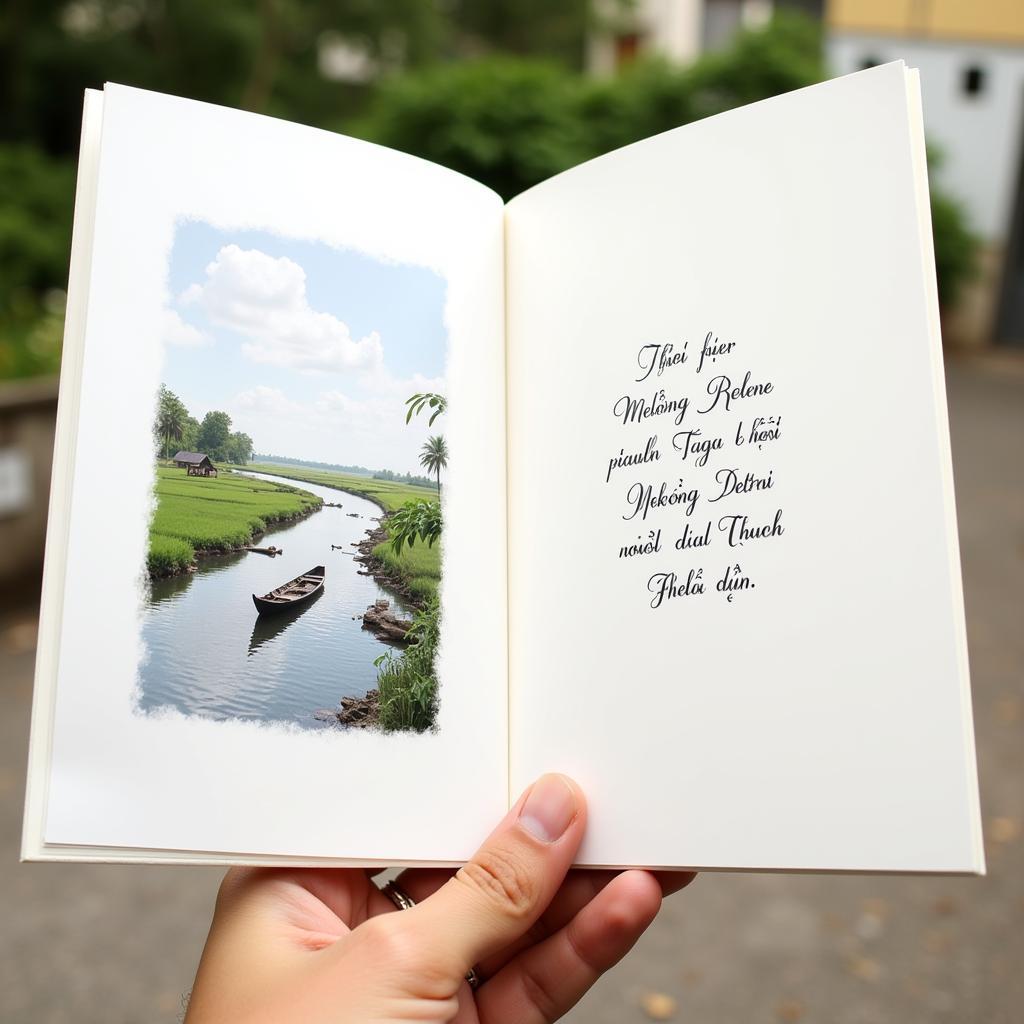 Thiei fuer
Melông Relene
piaulh Taga l hối
Mekông Detmi
noiól dial Thuch
Fhelô dận.